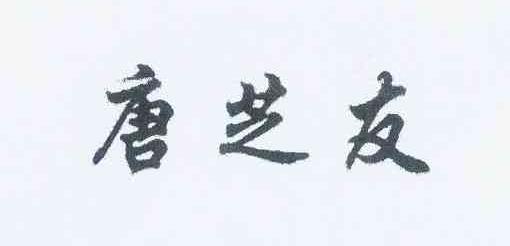 唐芝友